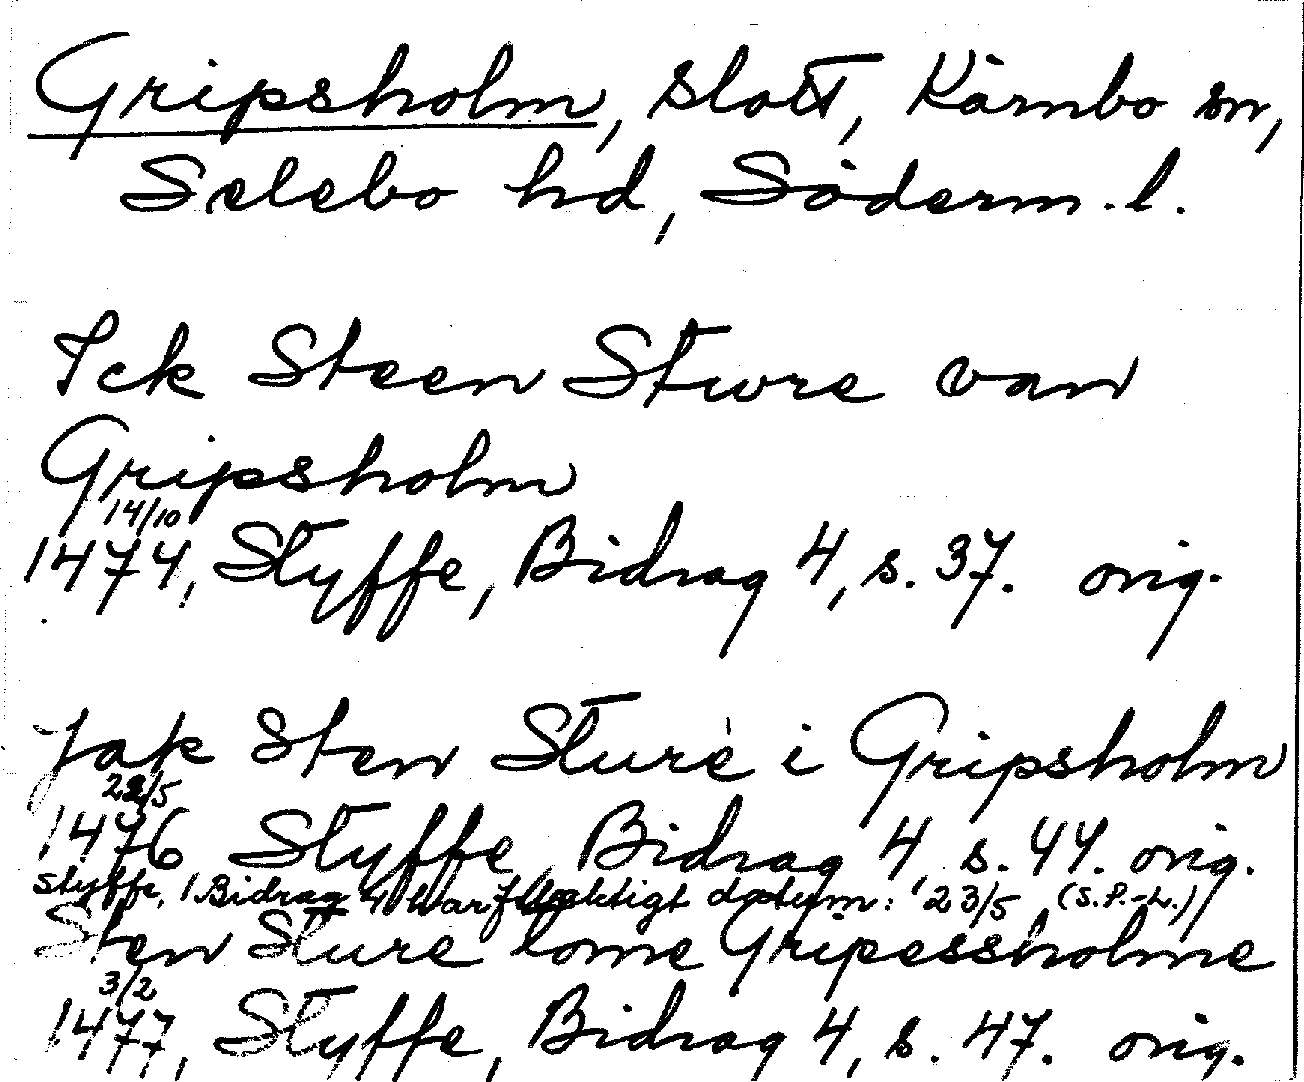 Gripsholm, slott, Kärnbo sn,
Selebo hd, Söderm.l.
Ick Steen Stwre van
Gripsholm
14/10
1474, Styffe, Bidrag 4, s. 37. orig.
Jak Sten Sture i Gripsholm
22/5
1476 Styffe, Bidrag 4, s. 44. orig.
Styffe, Bidrag 4 har felaktigt datum: 23/5 (S.P.-L.)
Sten Sture tome Gripessholme
3/2
1477, Styffe, Bidrag 4, s. 47. orig.